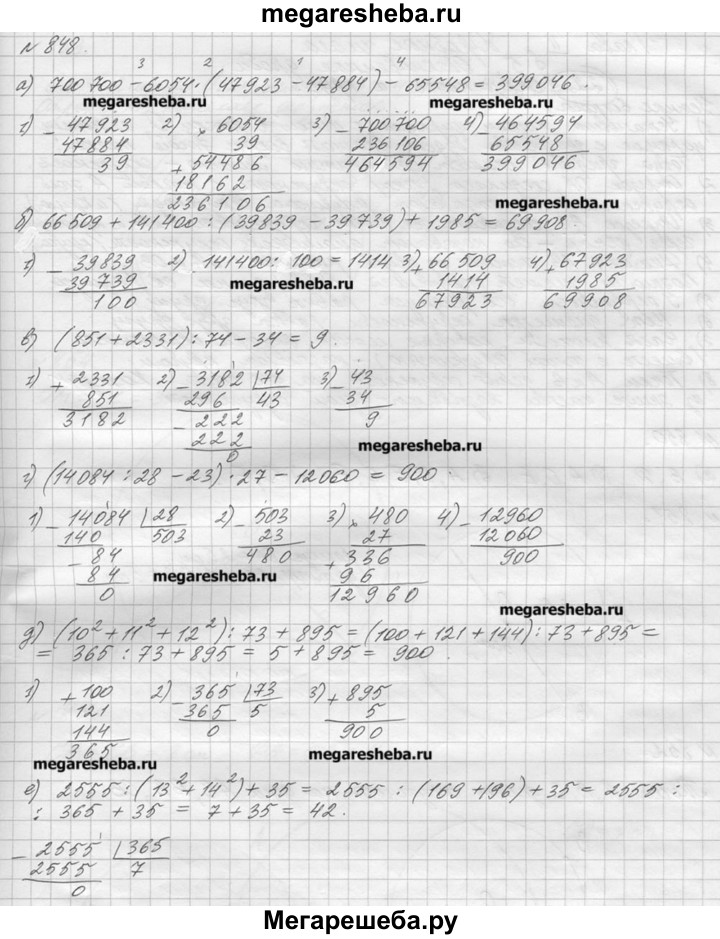 megaresheba.ru
№ 848.
3 2 1 4
а) 700 700 – 6054 · (47 923 – 47 884) – 65548 = 399 046.
megaresheba.ru megaresheba.ru
1) – 47923 2) × 6054 3) – 700 700 4) – 464594
47884 39 236 106 65548
39 + 54486 464594 399046
18162 megaresheba.ru
236106
б) 66 509 + 141 400 : (39839 – 39 739) + 1985 = 69 908.
1) – 39839 2) 141400 : 100 = 1414 3) + 66 509 4) + 67923
39739 megaresheba.ru 1414 1985
100 67923 69908
в) (851 + 2331) : 74 – 34 = 9.
1) + 2331 2) – 3182 | 74 3) – 43
851 296 43 34
3182 – 222 9
222
0
megaresheba.ru
г) (14084 : 28 – 23) · 27 – 12060 = 900.
1) – 14084 | 28 2) – 503 3) × 480 4) – 12960
140 503 23 27 12060
– 84 480 + 336 900
84 megaresheba.ru 96
0 12960
megaresheba.ru
д) (10² + 11² + 12²) : 73 + 895 = (100 + 121 + 144) : 73 + 895 =
= 365 : 73 + 895 = 5 + 895 = 900.
1) + 100 2) – 365 | 73 3) + 895
121 365 5 5
144 0 900
365
megaresheba.ru megaresheba.ru
е) 2555 : (13² + 14²) + 35 = 2555 : (169 + 196) + 35 = 2555 :
: 365 + 35 = 7 + 35 = 42.
– 2555 | 365
2555 7
0
Мегарешеба.ру